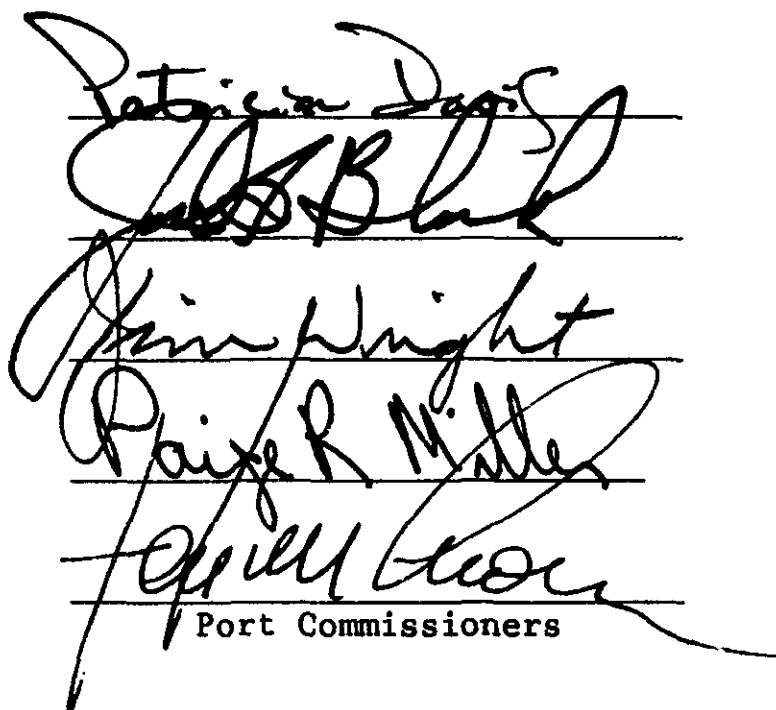 Patricia Davis
Jack Block
Jim Wright
Paige R Miller
Port Commissioners